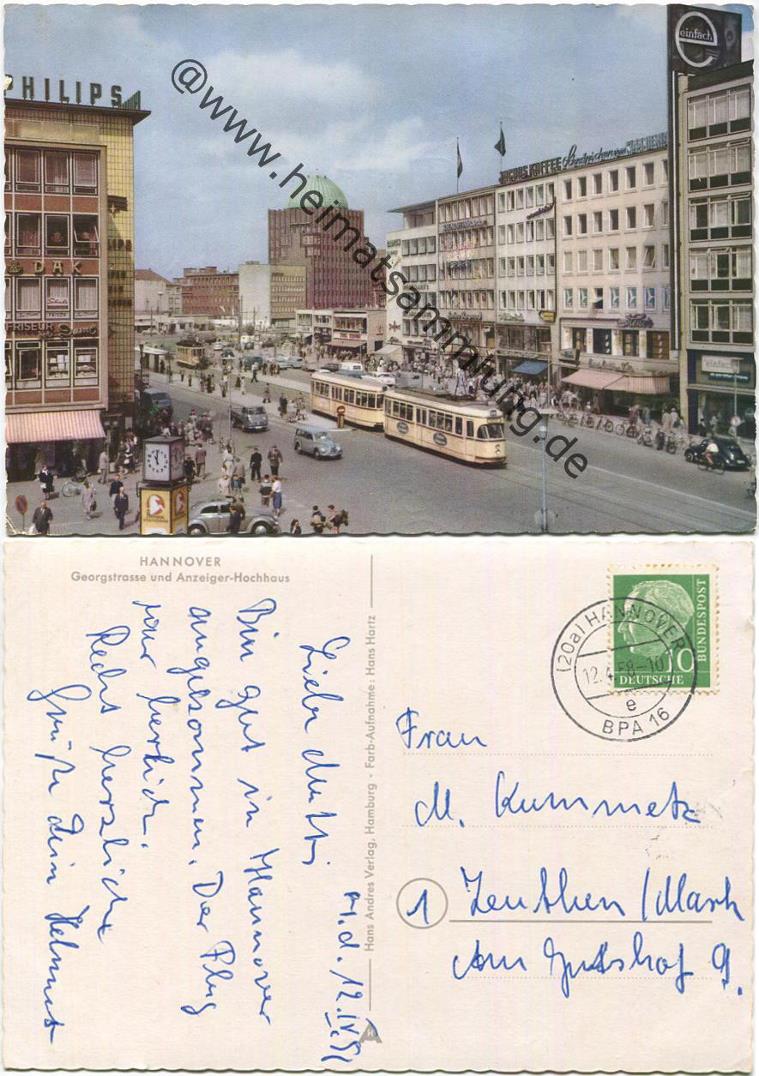 PHILIPS
einfach
JACOBS KAFFEE
DAK
FRISEUR
einfach
@www.heimatsammlung.de
HANNOVER
Georgstrasse und Anzeiger-Hochhaus
Hans Andres Verlag, Hamburg · Farb-Aufnahme: Hans Hartz
d. 12.IV.58
Liebe Mutti,
Bin gut in Hannover
angekommen. Der Flug
war herrlich.
Recht herzliche
Grüße Dein Helmut
(20a) HANNOVER
12.4.58-10
e
BPA 16
10
DEUTSCHE
BUNDESPOST
Frau
M. Kummetz
1 Zeuthen/Mark
Am Gutshof 9.